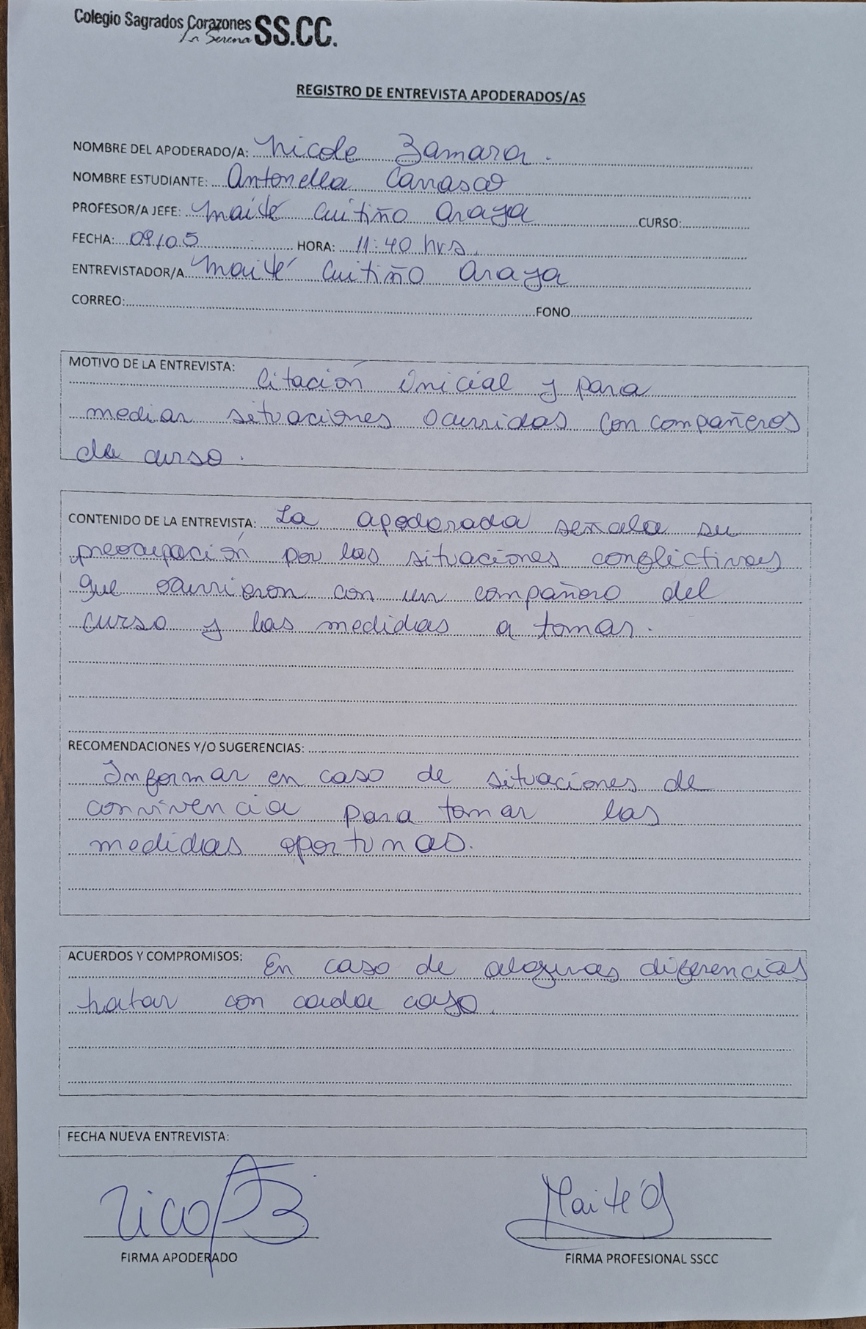 Colegio Sagrados Corazones SS.CC.
La Serena
REGISTRO DE ENTREVISTA APODERADOS/AS
NOMBRE DEL APODERADO/A: Nicole Zamara.
NOMBRE ESTUDIANTE: Antonella Carrasco
PROFESOR/A JEFE: Maité Cuitiño Araya CURSO:
FECHA: 09/05 HORA: 11:40 hrs.
ENTREVISTADOR/A Maité Cuitiño Araya
CORREO: FONO
MOTIVO DE LA ENTREVISTA: Citación inicial y para
mediar situaciones ocurridas con compañeros
de curso.
CONTENIDO DE LA ENTREVISTA: La apoderada señala su
preocupación por las situaciones conflictivas
que ocurrieron con un compañero del
curso y las medidas a tomar.
RECOMENDACIONES Y/O SUGERENCIAS:
Informar en caso de situaciones de
convivencia para tomar las
medidas oportunas.
ACUERDOS Y COMPROMISOS: En caso de algunas diferencias
tratar con cada caso.
FECHA NUEVA ENTREVISTA:
FIRMA APODERADO FIRMA PROFESIONAL SSCC